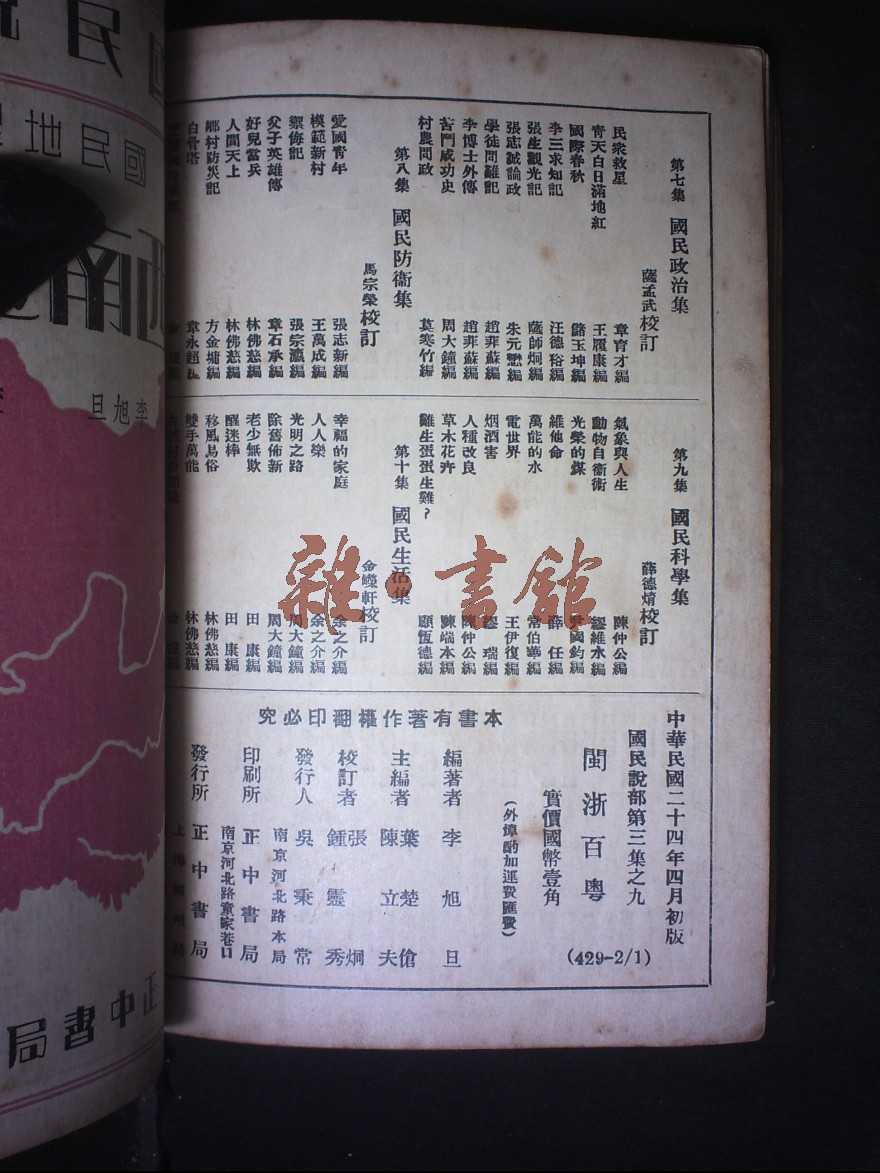 第七集 國民政治集
薩孟武校訂
民衆救星 章育才編
青天白日滿地紅 王履康編
國際春秋 儲玉坤編
李三求知記 汪德裕編
張生觀光記 薩師炯編
張志誠論政 朱元懋編
學徒問難記 趙菲蘇編
李博士外傳 趙菲蘇編
苦鬥成功史 周大鐘編
村農問政 莫寒竹編
第八集 國民防衞集
馬宗榮校訂
愛國青年 張志新編
模範新村 王萬成編
禦侮記 張宗瀛編
父子英雄傳 章石承編
好兒當兵 林佛慈編
人間天上 林佛慈編
鄉村防災記 方金墉編
白骨塔 章永超編
第九集 國民科學集
薛德焴校訂
氣象與人生 陳仲公編
動物自衞術 繆維水編
光榮的煤 尹國鈞編
維他命 薛任編
萬能的水 常伯華編
電世界 王伊復編
烟酒害 繆瑞編
人種改良 陳仲公編
草木花卉 陳端本編
雞生蛋蛋生雞? 顧恆德編
第十集 國民生活集
金嶸軒校訂
幸福的家庭 余之介編
人人樂 余之介編
光明之路 周大鐘編
除舊佈新 周大鐘編
老少無欺 田康編
醒迷棒 田康編
移風易俗 林佛慈編
雙手萬能 林佛慈編
中華民國二十四年四月初版
國民說部第三集之九
閩浙百粵
(429-2/1)
實價國幣壹角
(外埠酌加運費匯費)
本書有著作權翻印必究
編著者 李旭旦
主編者 葉楚傖 陳立夫
校訂者 張炯 鍾靈秀
發行人 吳秉常
南京河北路本局
印刷所 正中書局
南京河北路童家巷口
發行所 正中書局
雜·書館
國民地
李旭旦
正中書局